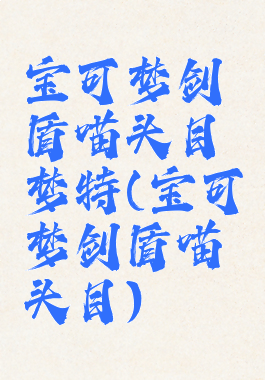 宝可梦剑
盾喵头目
梦特(宝可
梦剑盾喵
头目)